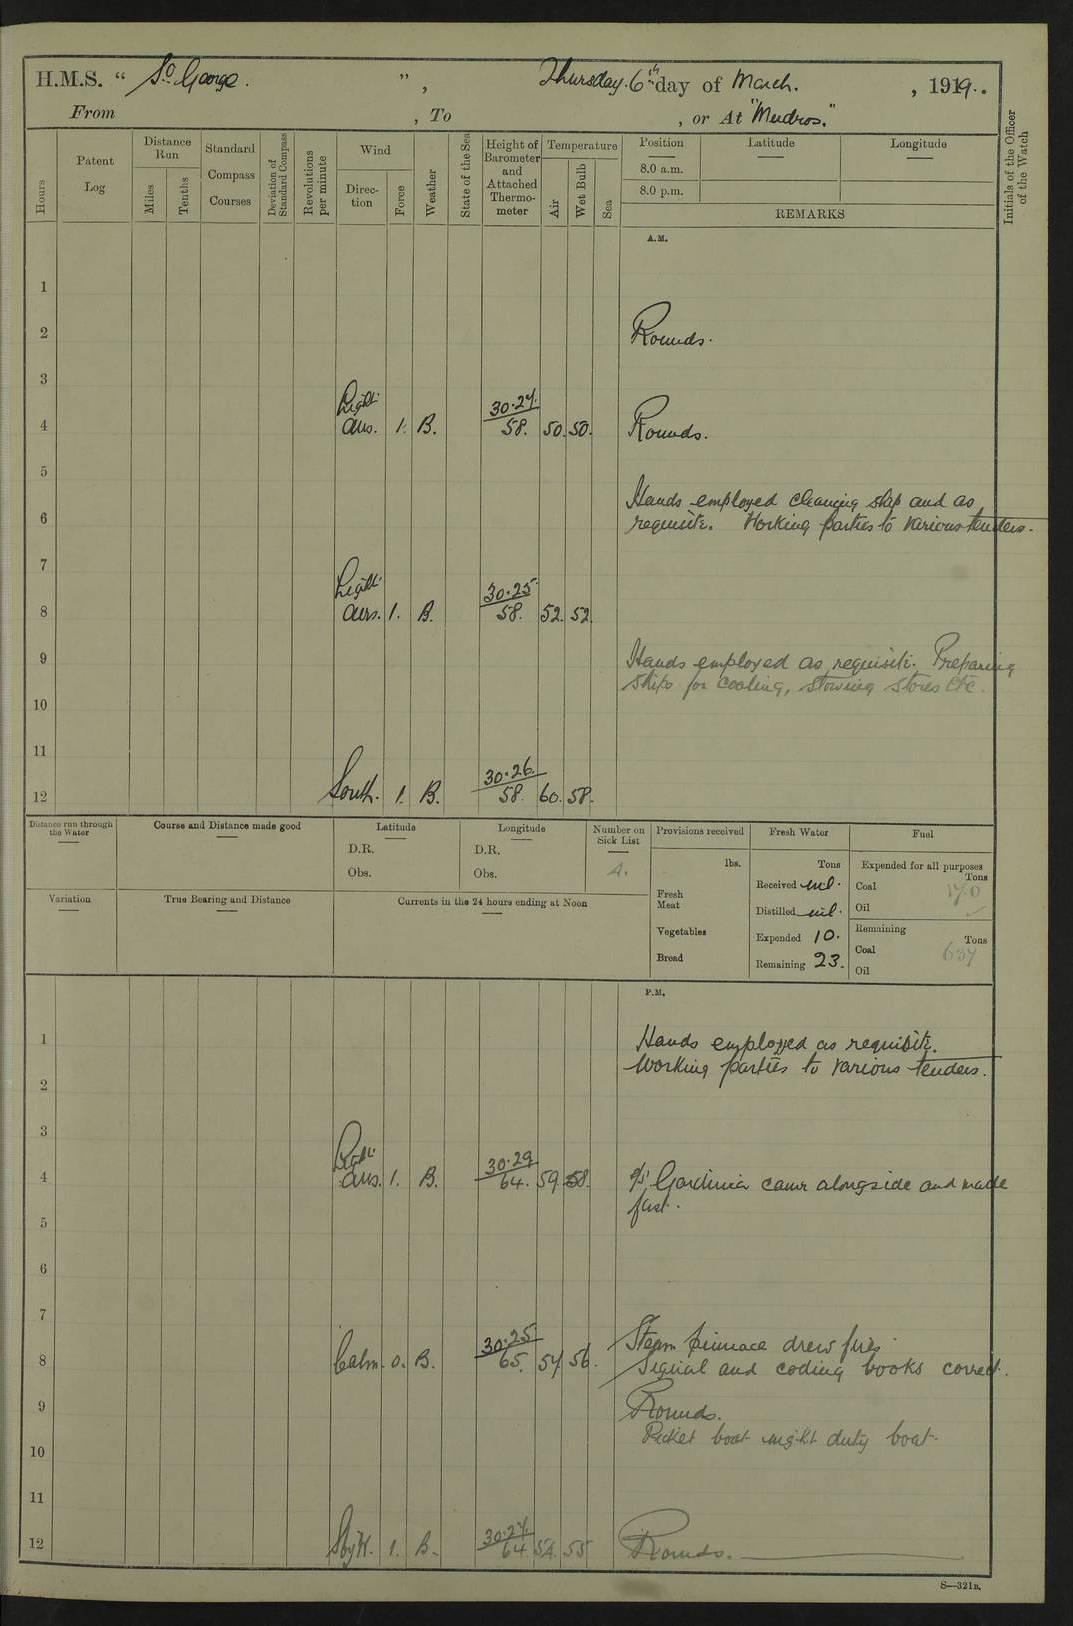 H.M.S. " St George. ", Thursday. 6th day of March. , 1919..
From , To , or At "Mudros."
Hours
Patent Log
Distance Run
Miles
Tenths
Standard Compass Courses
Deviation of Standard Compass
Revolutions per minute
Wind
Direction
Force
Weather
State of the Sea
Height of Barometer and Attached Thermometer
Temperature
Air
Wet Bulb
Sea
Position
8.0 a.m.
8.0 p.m.
Latitude
Longitude
REMARKS
Initials of the Officer of the Watch
A.M.
1
2 Rounds.
3
Light 30.27.
4 airs. 1. B. 58. 50. 50. Rounds.
5
Hands employed cleaning ship and as
6 requisite. Working parties to various tenders.
7
Light 30.25
8 airs. 1. B. 58. 52. 52.
9 Hands employed as requisite. Preparing
ships for coaling, stowing stores etc.
10
11
30.26.
12 South. 1. B. 58. 60. 58.
Distance run through the Water
Course and Distance made good
Latitude
D.R.
Obs.
Longitude
D.R.
Obs.
Number on Sick List
4.
Provisions received
lbs.
Fresh Meat
Vegetables
Bread
Fresh Water
Tons
Received nil.
Distilled nil.
Expended 10.
Remaining 23.
Fuel
Expended for all purposes
Tons
Coal
Oil
Remaining
Tons
Coal 637
Oil
Variation
True Bearing and Distance
Currents in the 24 hours ending at Noon
P.M.
1 Hands employed as requisite.
Working parties to various tenders.
2
3
Light 30.29
4 airs. 1. B. 64. 59. 58. s/s Gardinia came alongside and made
fast.
5
6
7
30.25 Steam pinnace drew fires
8 Calm. 0. B. 65. 57 56. Signal and coding books correct.
9 Rounds.
Picket boat night duty boat.
10
11
30.27.
12 SbyW. 1. B. 64. 54. 55 Rounds.
S—321B.